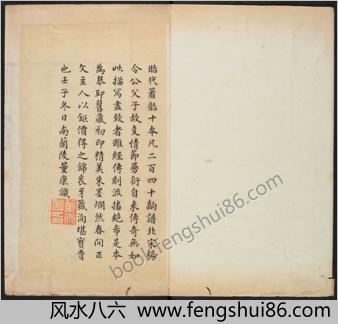 昭代簫韶十本凡二百四十齣譜北宋楊
令公父子故事情節曼衍自來傳奇無如
此描寫盡致者雖經傳刻流播絕希是本
為恭邸舊藏初印精美朱墨爛然春間正
文主人以鉅價得之錦裳芸籤洵堪寶貴
也壬子冬日南蘭陵董康識
book.fengshui86.com
风水八六 www.fengshui86.com